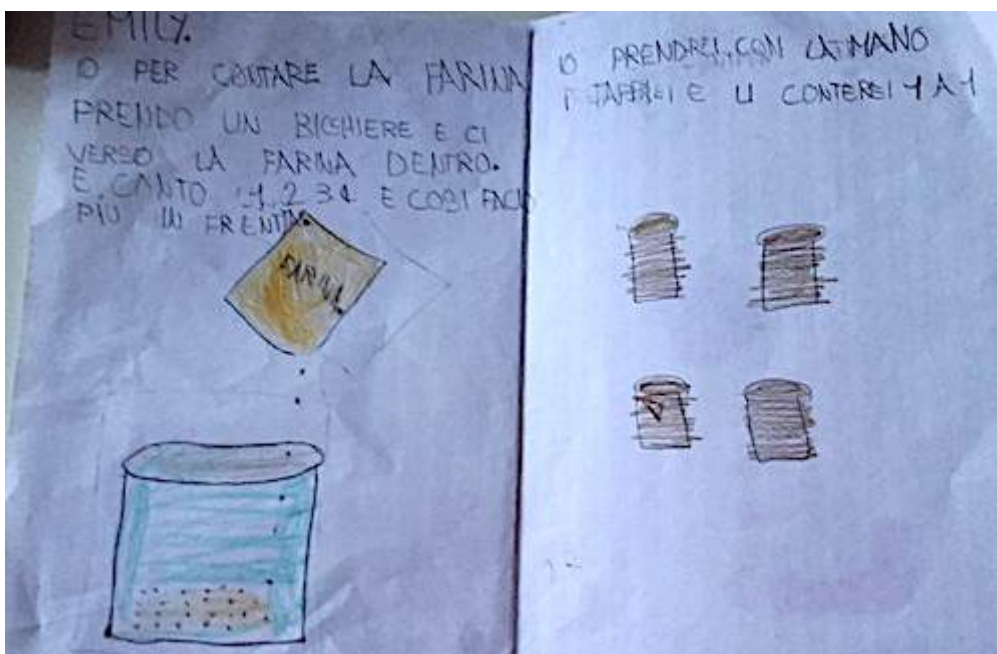 EMILY.
IO PER CONTARE LA FARINA
PRENDO UN BICCHIERE E CI
VERSO LA FARINA DENTRO.
E CONTO 1 2 3 4 E COSI FACIO
PIÙ IN FRENTA
FARINA
IO PRENDREI CON LA MANO
I TAPPI E LI CONTEREI 1 A 1